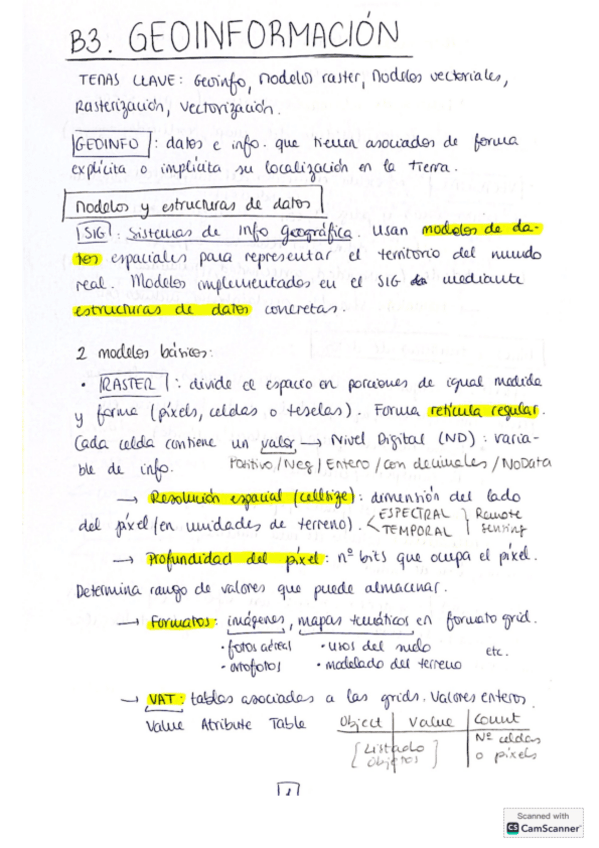 B3. GEOINFORMACIÓN
TEMAS CLAVE: Geoinfo, Modelos raster, Modelos vectoriales,
Rasterización, Vectorización.
GEOINFO: datos e info. que tienen asociados de forma
explícita o implícita su localización en la Tierra.
Modelos y estructuras de datos
SIG: Sistemas de Info geográfica. Usan modelos de da-
tos espaciales para representar el territorio del mundo
real. Modelos implementados en el SIG mediante
estructuras de datos concretas.
2 modelos básicos:
• RASTER: divide el espacio en porciones de igual medida
y forma (píxels, celdas o teselas). Forma retícula regular.
Cada celda contiene un valor → Nivel Digital (ND): varia-
ble de info. Positivo/Neg/Entero/con decimales/NoData
→ Resolución espacial (cellsize): dimensión del lado
del píxel (en unidades de terreno). < ESPECTRAL TEMPORAL } Remote sensing
→ Profundidad del píxel: nº bits que ocupa el píxel.
Determina rango de valores que puede almacenar.
→ Formatos: imágenes, mapas temáticos en formato grid.
• fotos aéreas • usos del suelo etc.
• ortofotos • modelado del terreno
→ VAT: tablas asociadas a los grids. Valores enteros.
Value Atribute Table Object Value Count
[Listado Objetos] Nº celdas o píxels
1
Scanned with
CS CamScanner